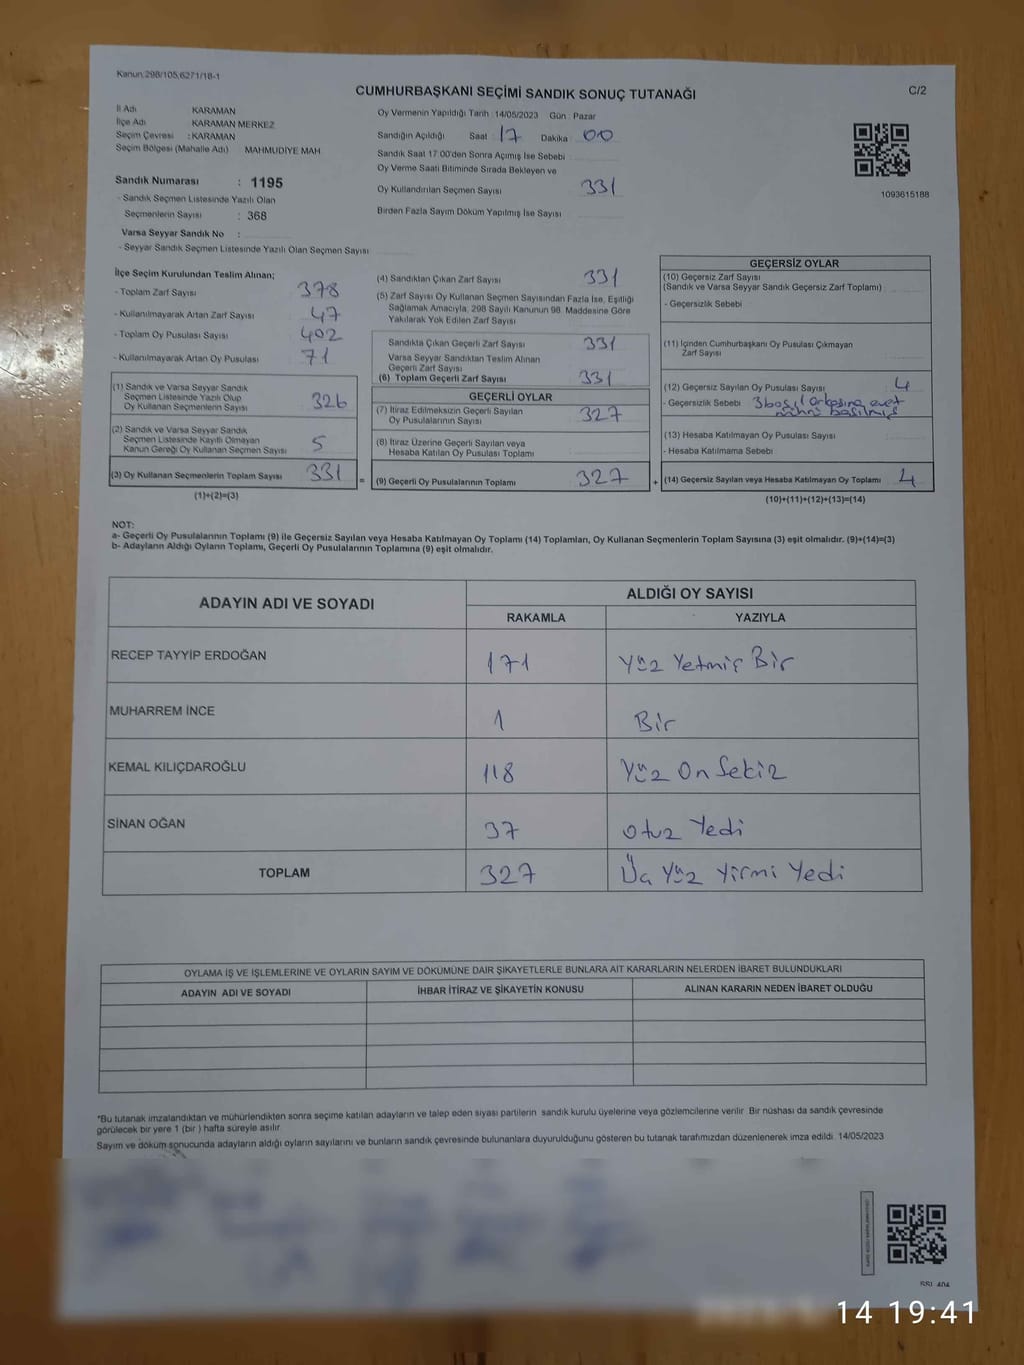 Kanun.298/105,6271/18-1
CUMHURBAŞKANI SEÇİMİ SANDIK SONUÇ TUTANAĞI
C/2
İl Adı KARAMAN
İlçe Adı KARAMAN MERKEZ
Seçim Çevresi : KARAMAN
Seçim Bölgesi (Mahalle Adı) MAHMUDİYE MAH
Sandık Numarası : 1195
- Sandık Seçmen Listesinde Yazılı Olan
Seçmenlerin Sayısı : 368
Varsa Seyyar Sandık No :
- Seyyar Sandık Seçmen Listesinde Yazılı Olan Seçmen Sayısı
Oy Vermenin Yapıldığı Tarih :14/05/2023 Gün : Pazar
Sandığın Açıldığı Saat : 17 Dakika : 00
Sandık Saat 17:00'den Sonra Açımış İse Sebebi
Oy Verme Saati Bitiminde Sırada Bekleyen ve
Oy Kullandırılan Seçmen Sayısı 331
Birden Fazla Sayım Döküm Yapılmış İse Sayısı
1093615188
İlçe Seçim Kurulundan Teslim Alınan;
- Toplam Zarf Sayısı 378
- Kullanılmayarak Artan Zarf Sayısı 47
- Toplam Oy Pusulası Sayısı 402
- Kullanılmayarak Artan Oy Pusulası 71
(1) Sandık ve Varsa Seyyar Sandık
Seçmen Listesinde Yazılı Olup
Oy Kullanan Seçmenlerin Sayısı 326
(2) Sandık ve Varsa Seyyar Sandık
Seçmen Listesinde Kayıtlı Olmayan
Kanun Gereği Oy Kullanan Seçmen Sayısı 5
(3) Oy Kullanan Seçmenlerin Toplam Sayısı 331
(1)+(2)=(3)
(4) Sandıktan Çıkan Zarf Sayısı 331
(5) Zarf Sayısı Oy Kullanan Seçmen Sayısından Fazla İse, Eşitliği
Sağlamak Amacıyla, 298 Sayılı Kanunun 98. Maddesine Göre
Yakılarak Yok Edilen Zarf Sayısı
Sandıkta Çıkan Geçerli Zarf Sayısı 331
Varsa Seyyar Sandıktan Teslim Alınan
Geçerli Zarf Sayısı
(6) Toplam Geçerli Zarf Sayısı 331
GEÇERLİ OYLAR
(7) İtiraz Edilmeksizin Geçerli Sayılan
Oy Pusulalarının Sayısı 327
(8) İtiraz Üzerine Geçerli Sayılan veya
Hesaba Katılan Oy Pusulası Toplamı
= (9) Geçerli Oy Pusulalarının Toplamı 327
GEÇERSİZ OYLAR
(10) Geçersiz Zarf Sayısı
(Sandık ve Varsa Seyyar Sandık Geçersiz Zarf Toplamı)
- Geçersizlik Sebebi
(11) İçinden Cumhurbaşkanı Oy Pusulası Çıkmayan
Zarf Sayısı
(12) Geçersiz Sayılan Oy Pusulası Sayısı 4
- Geçersizlik Sebebi 3 boş, 1 arkasına evet
mührü basılmış
(13) Hesaba Katılmayan Oy Pusulası Sayısı
- Hesaba Katılmama Sebebi
+ (14) Geçersiz Sayılan veya Hesaba Katılmayan Oy Toplamı 4
(10)+(11)+(12)+(13)=(14)
NOT:
a- Geçerli Oy Pusulalarının Toplamı (9) ile Geçersiz Sayılan veya Hesaba Katılmayan Oy Toplamı (14) Toplamları, Oy Kullanan Seçmenlerin Toplam Sayısına (3) eşit olmalıdır. (9)+(14)=(3)
b- Adayların Aldığı Oyların Toplamı, Geçerli Oy Pusulalarının Toplamına (9) eşit olmalıdır.
ADAYIN ADI VE SOYADI
ALDIĞI OY SAYISI
RAKAMLA YAZIYLA
RECEP TAYYİP ERDOĞAN 171 Yüz Yetmiş Bir
MUHARREM İNCE 1 Bir
KEMAL KILIÇDAROĞLU 118 Yüz On Sekiz
SİNAN OĞAN 37 Otuz Yedi
TOPLAM 327 Üç Yüz Yirmi Yedi
OYLAMA İŞ VE İŞLEMLERİNE VE OYLARIN SAYIM VE DÖKÜMÜNE DAİR ŞİKAYETLERLE BUNLARA AİT KARARLARIN NELERDEN İBARET BULUNDUKLARI
ADAYIN ADI VE SOYADI İHBAR İTİRAZ VE ŞİKAYETİN KONUSU ALINAN KARARIN NEDEN İBARET OLDUĞU
*Bu tutanak imzalandıktan ve mühürlendikten sonra seçime katılan adayların ve talep eden siyasi partilerin sandık kurulu üyelerine veya gözlemcilerine verilir. Bir nüshası da sandık çevresinde
görülecek bir yere 1 (bir ) hafta süreyle asılır.
Sayım ve döküm sonucunda adayların aldığı oyların sayılarını ve bunların sandık çevresinde bulunanlara duyurulduğunu gösteren bu tutanak tarafımızdan düzenlenerek imza edildi. 14/05/2023
14 19:41